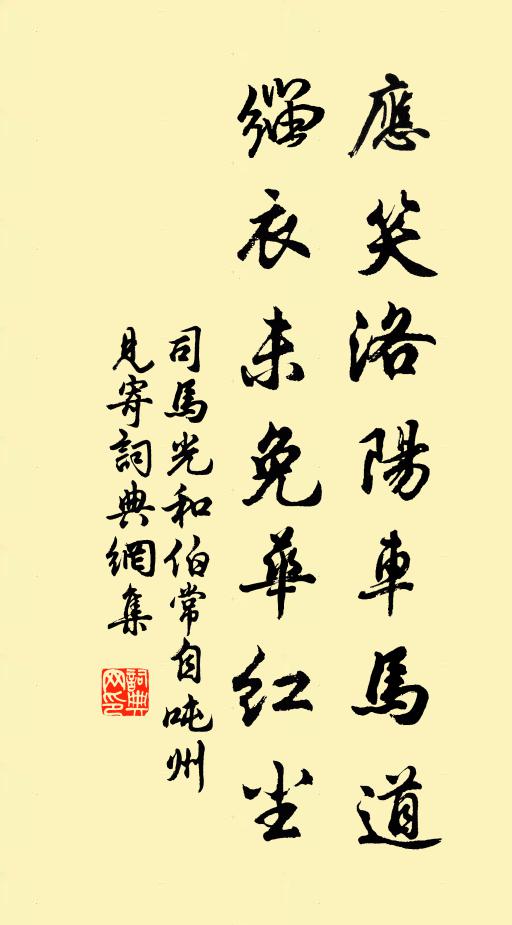 應笑洛陽車馬道
緇衣未免華紅尘
司馬光和伯常自吨州
見寄詞典網集
詞典
网印